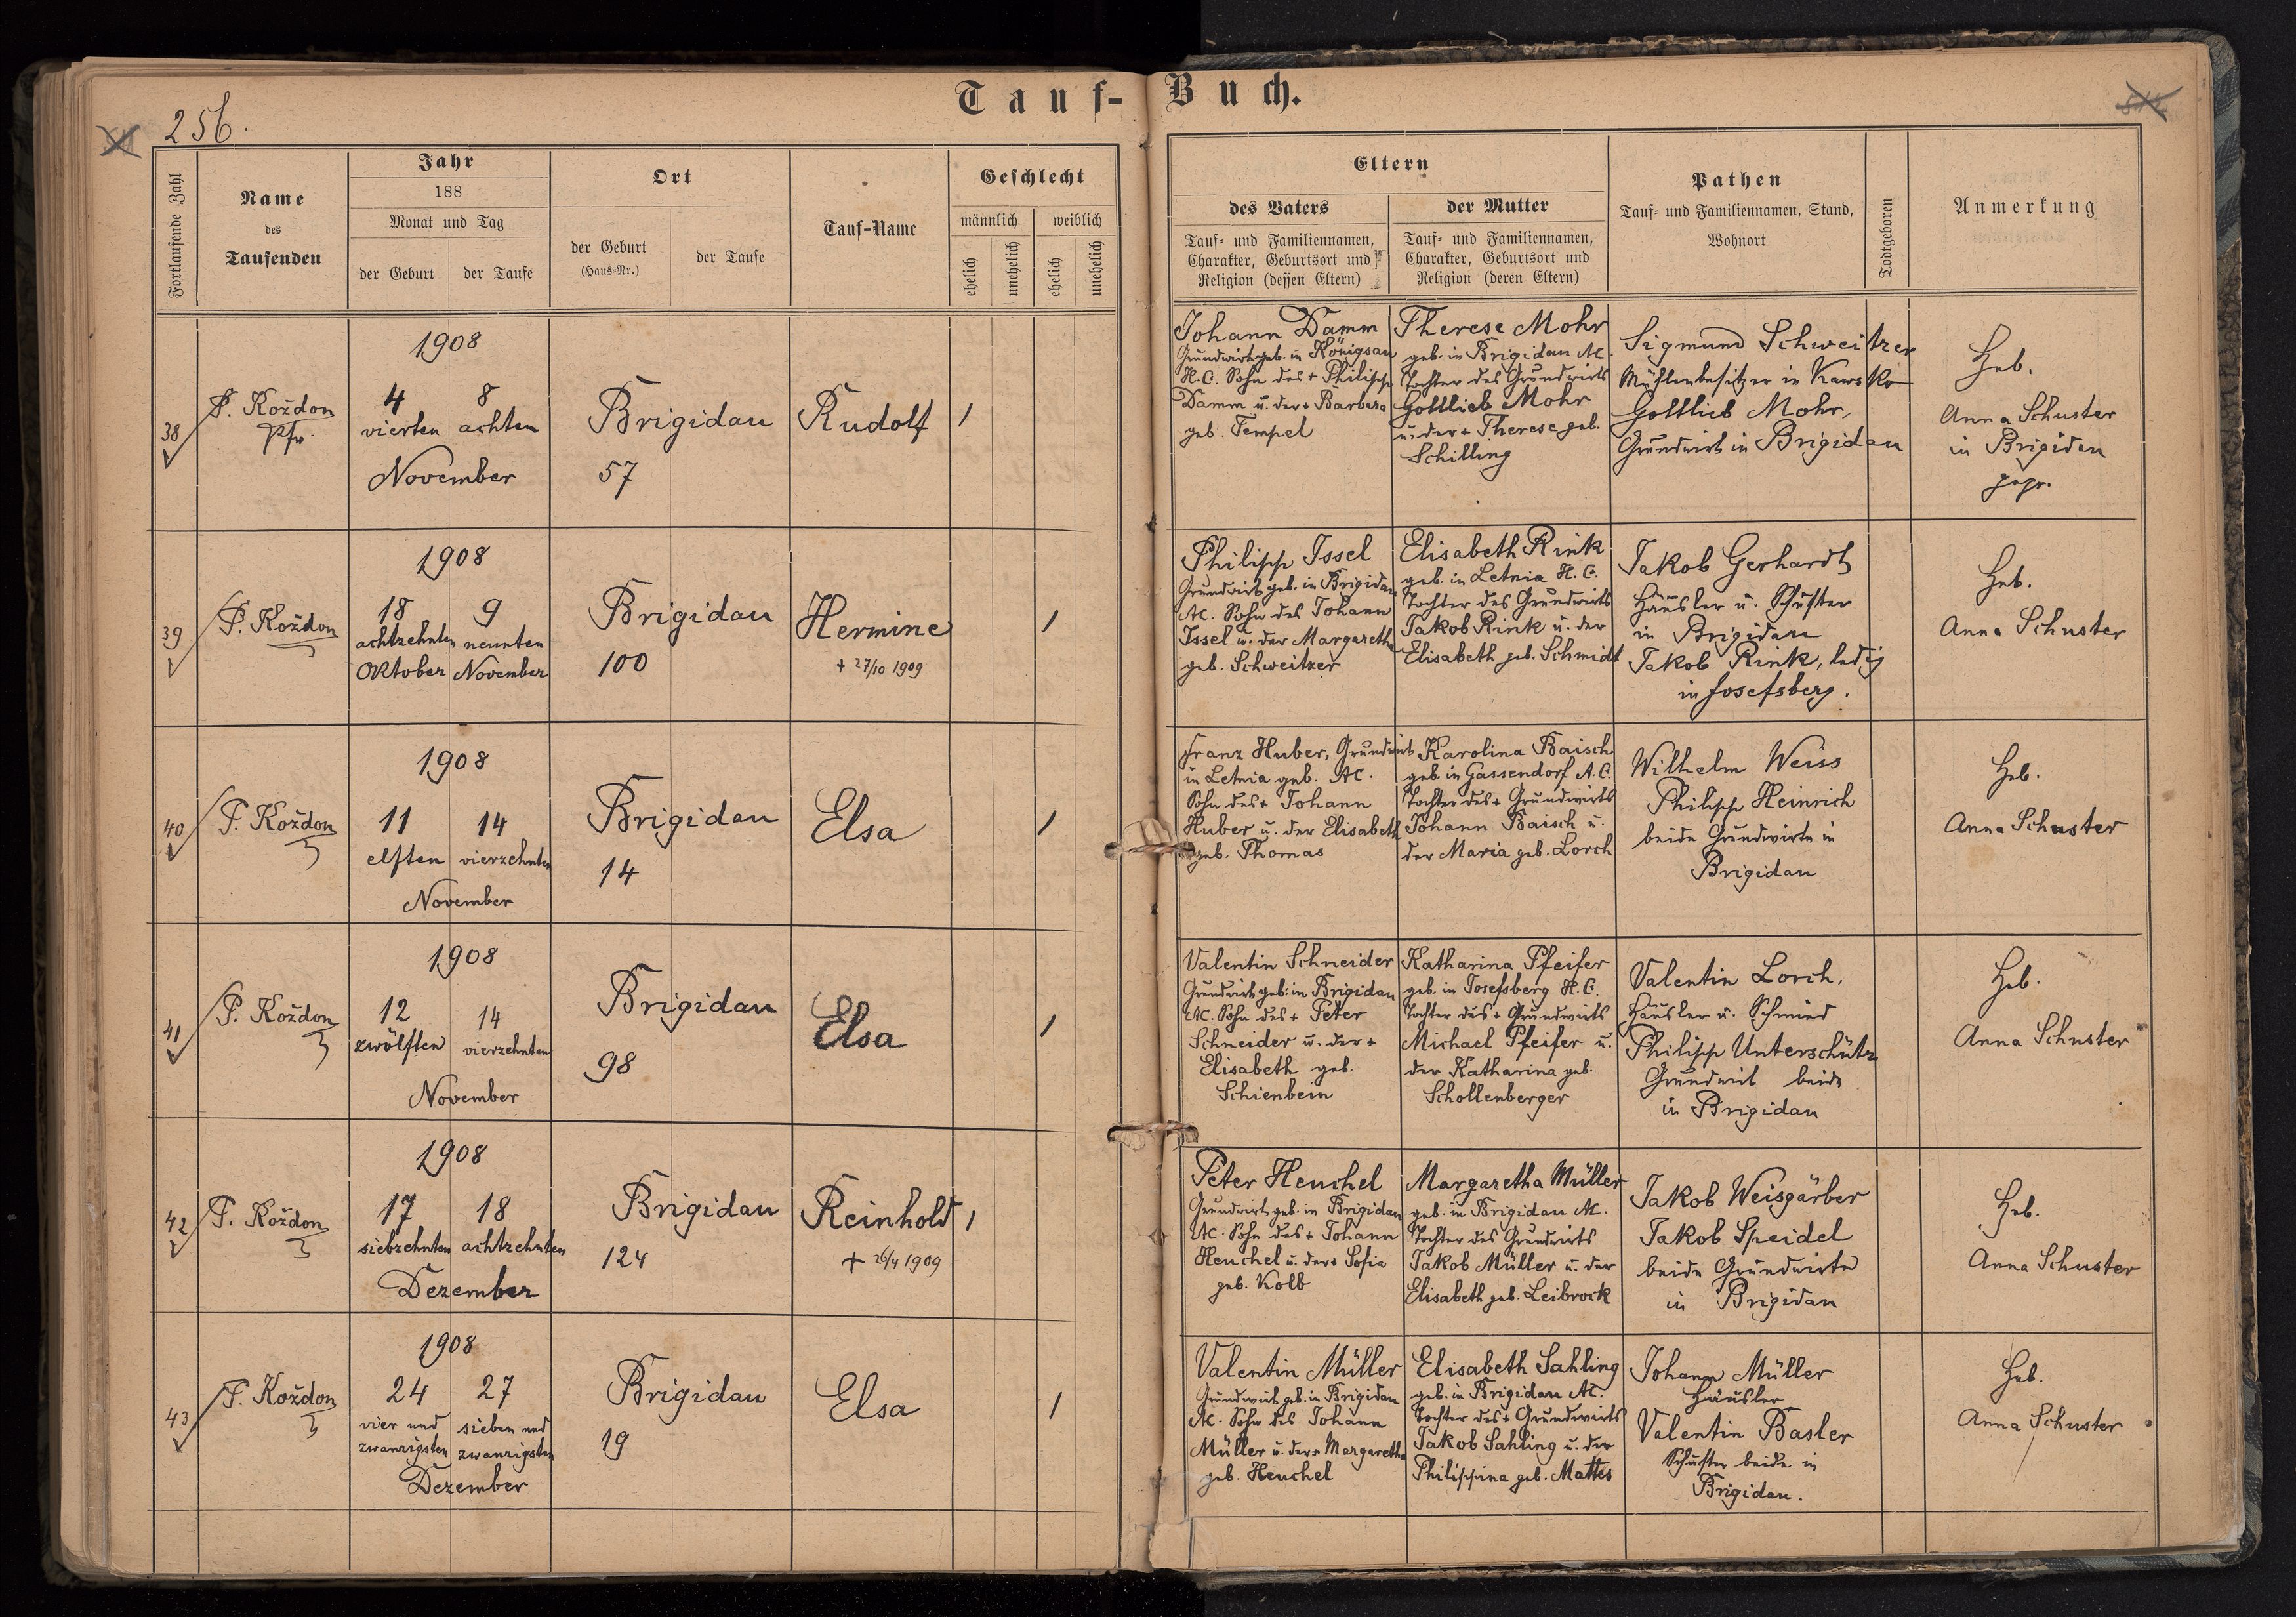 Tauf-Buch.
256.
Fortlaufende Zahl
Name
des
Taufenden
Jahr
188
Monat und Tag
der Geburt
der Taufe
Ort
der Geburt
(Haus-Nr.)
der Taufe
Tauf-Name
Geschlecht
männlich
weiblich
ehelich
unehelich
ehelich
unehelich
Eltern
des Vaters
Tauf- und Familiennamen,
Charakter, Geburtsort und
Religion (dessen Eltern)
der Mutter
Tauf- und Familiennamen,
Charakter, Geburtsort und
Religion (deren Eltern)
Pathen
Tauf- und Familiennamen, Stand,
Wohnort
Todtgeboren
Anmerkung
38
P. Koždon
Pfr.
1908
4 8
vierten achten
November
Brigidau
57
Rudolf
1
Johann Damm
Grundwirt geb. in Königsau
H.C. Sohn des + Philipp
Damm u. der + Barbara
geb. Tempel
Therese Mohr
geb. in Brigidau AC.
Tochter des Grundwirts
Gottlieb Mohr
u. der + Therese geb.
Schilling
Sigmund Schweitzer
Mühlenbesitzer in
Gottlieb Mohr,
Grundwirt in Brigidau
Heb.
Anna Schuster
in Brigidau
gepr.
39
P. Koždon
1908
18 9
achtzehnten neunten
Oktober November
Brigidau
100
Hermine
+ 27/10 1909
1
Philipp Issel
Grundwirt geb. in Brigidau
AC. Sohn des Johann
Issel u. der Margaretha
geb. Schweitzer
Elisabeth Rink
geb. in Letnia H.C.
Tochter des Grundwirts
Jakob Rink u. der
Elisabeth geb. Schmidt
Jakob Gerhardt
Häusler u. Schuster
in Brigidau
Jakob Rink, ledig
in Josefsberg.
Heb.
Anna Schuster
40
P. Koždon
1908
11 14
elften vierzehnten
November
Brigidau
14
Elsa
1
Franz Huber, Grundwirt
in Letnia geb. AC.
Sohn des + Johann
Huber u. der Elisabeth
geb. Thomas
Karolina Baisch
geb. in Gassendorf A.C.
Tochter des + Grundwirts
Johann Baisch u.
der Maria geb. Lorch
Wilhelm Weiss
Philipp Heinrich
beide Grundwirte in
Brigidau
Heb.
Anna Schuster
41
P. Koždon
1908
12 14
zwölften vierzehnten
November
Brigidau
98
Elsa
1
Valentin Schneider
Grundwirt geb. in Brigidau
AC. Sohn des + Peter
Schneider u. der +
Elisabeth geb.
Schienbein
Katharina Pfeifer
geb. in Josefsberg H.C.
Tochter des + Grundwirts
Michael Pfeifer u.
der Katharina geb.
Schollenberger
Valentin Lorch,
Häusler u. Schmied
Philipp Unterschütz
Grundwirt beide
in Brigidau
Heb.
Anna Schuster
42
P. Koždon
1908
17 18
siebzehnten achtzehnten
Dezember
Brigidau
124
Reinhold
+ 26/4 1909
1
Peter Heuchel
Grundwirt geb. in Brigidau
AC. Sohn des + Johann
Heuchel u. der + Sofia
geb. Kolb
Margaretha Müller
geb. in Brigidau AC.
Tochter des Grundwirts
Jakob Müller u. der
Elisabeth geb. Leibrock
Jakob Weisgärber
Jakob Speidel
beide Grundwirte
in Brigidau
Heb.
Anna Schuster
43
P. Koždon
1908
24 27
vier und sieben und
zwanzigsten zwanzigsten
Dezember
Brigidau
19
Elsa
1
Valentin Müller
Grundwirt geb. in Brigidau
AC. Sohn des Johann
Müller u. der + Margaretha
geb. Heuchel
Elisabeth Sahling
geb. in Brigidau AC.
Tochter des + Grundwirts
Jakob Sahling u. der
Philippina geb. Mattes
Johann Müller
Häusler
Valentin Basler
Schuster beide in
Brigidau.
Heb.
Anna Schuster